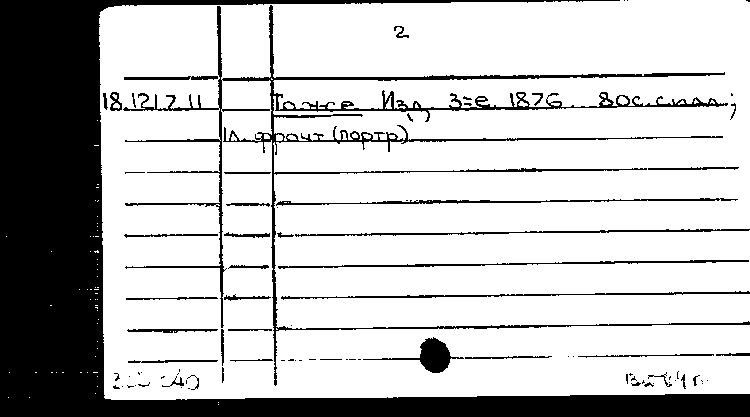 2
18.121.7.11 То же. Изд. 3-е. 1876. 80 с. с илл.;
1 л. фронт (портр)